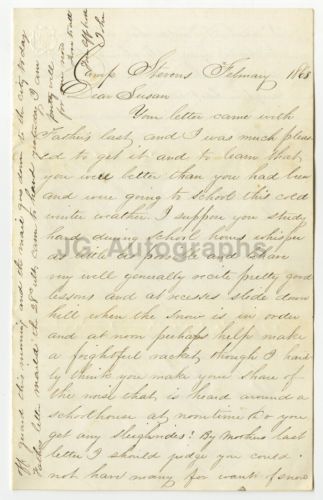 Camp Stevens February 1863
Dear Susan
Your letter came with
Father's last, and I was much pleas-
ed to get it and to learn that
you were better than you had been
and were going to school this cold
winter weather. I suppose you study
hard during school hours whisper
as little as possible and
very well generally recite pretty good
lessons and at recesses slide down
hill when the snow is in order
and at noon perhaps help make
a frightful racket, though I hard
ly think you make your share of
the noise that is heard around a
schoolhouse at noontime. Do you
get any sleighrides? By Mothers last
letter I should judge you could
not have many for want of snow
JG Autographs
this morning and the mail goes down to the city to day
Fathers letter mailed the 28 came to hand yesterday I am
pretty well
for